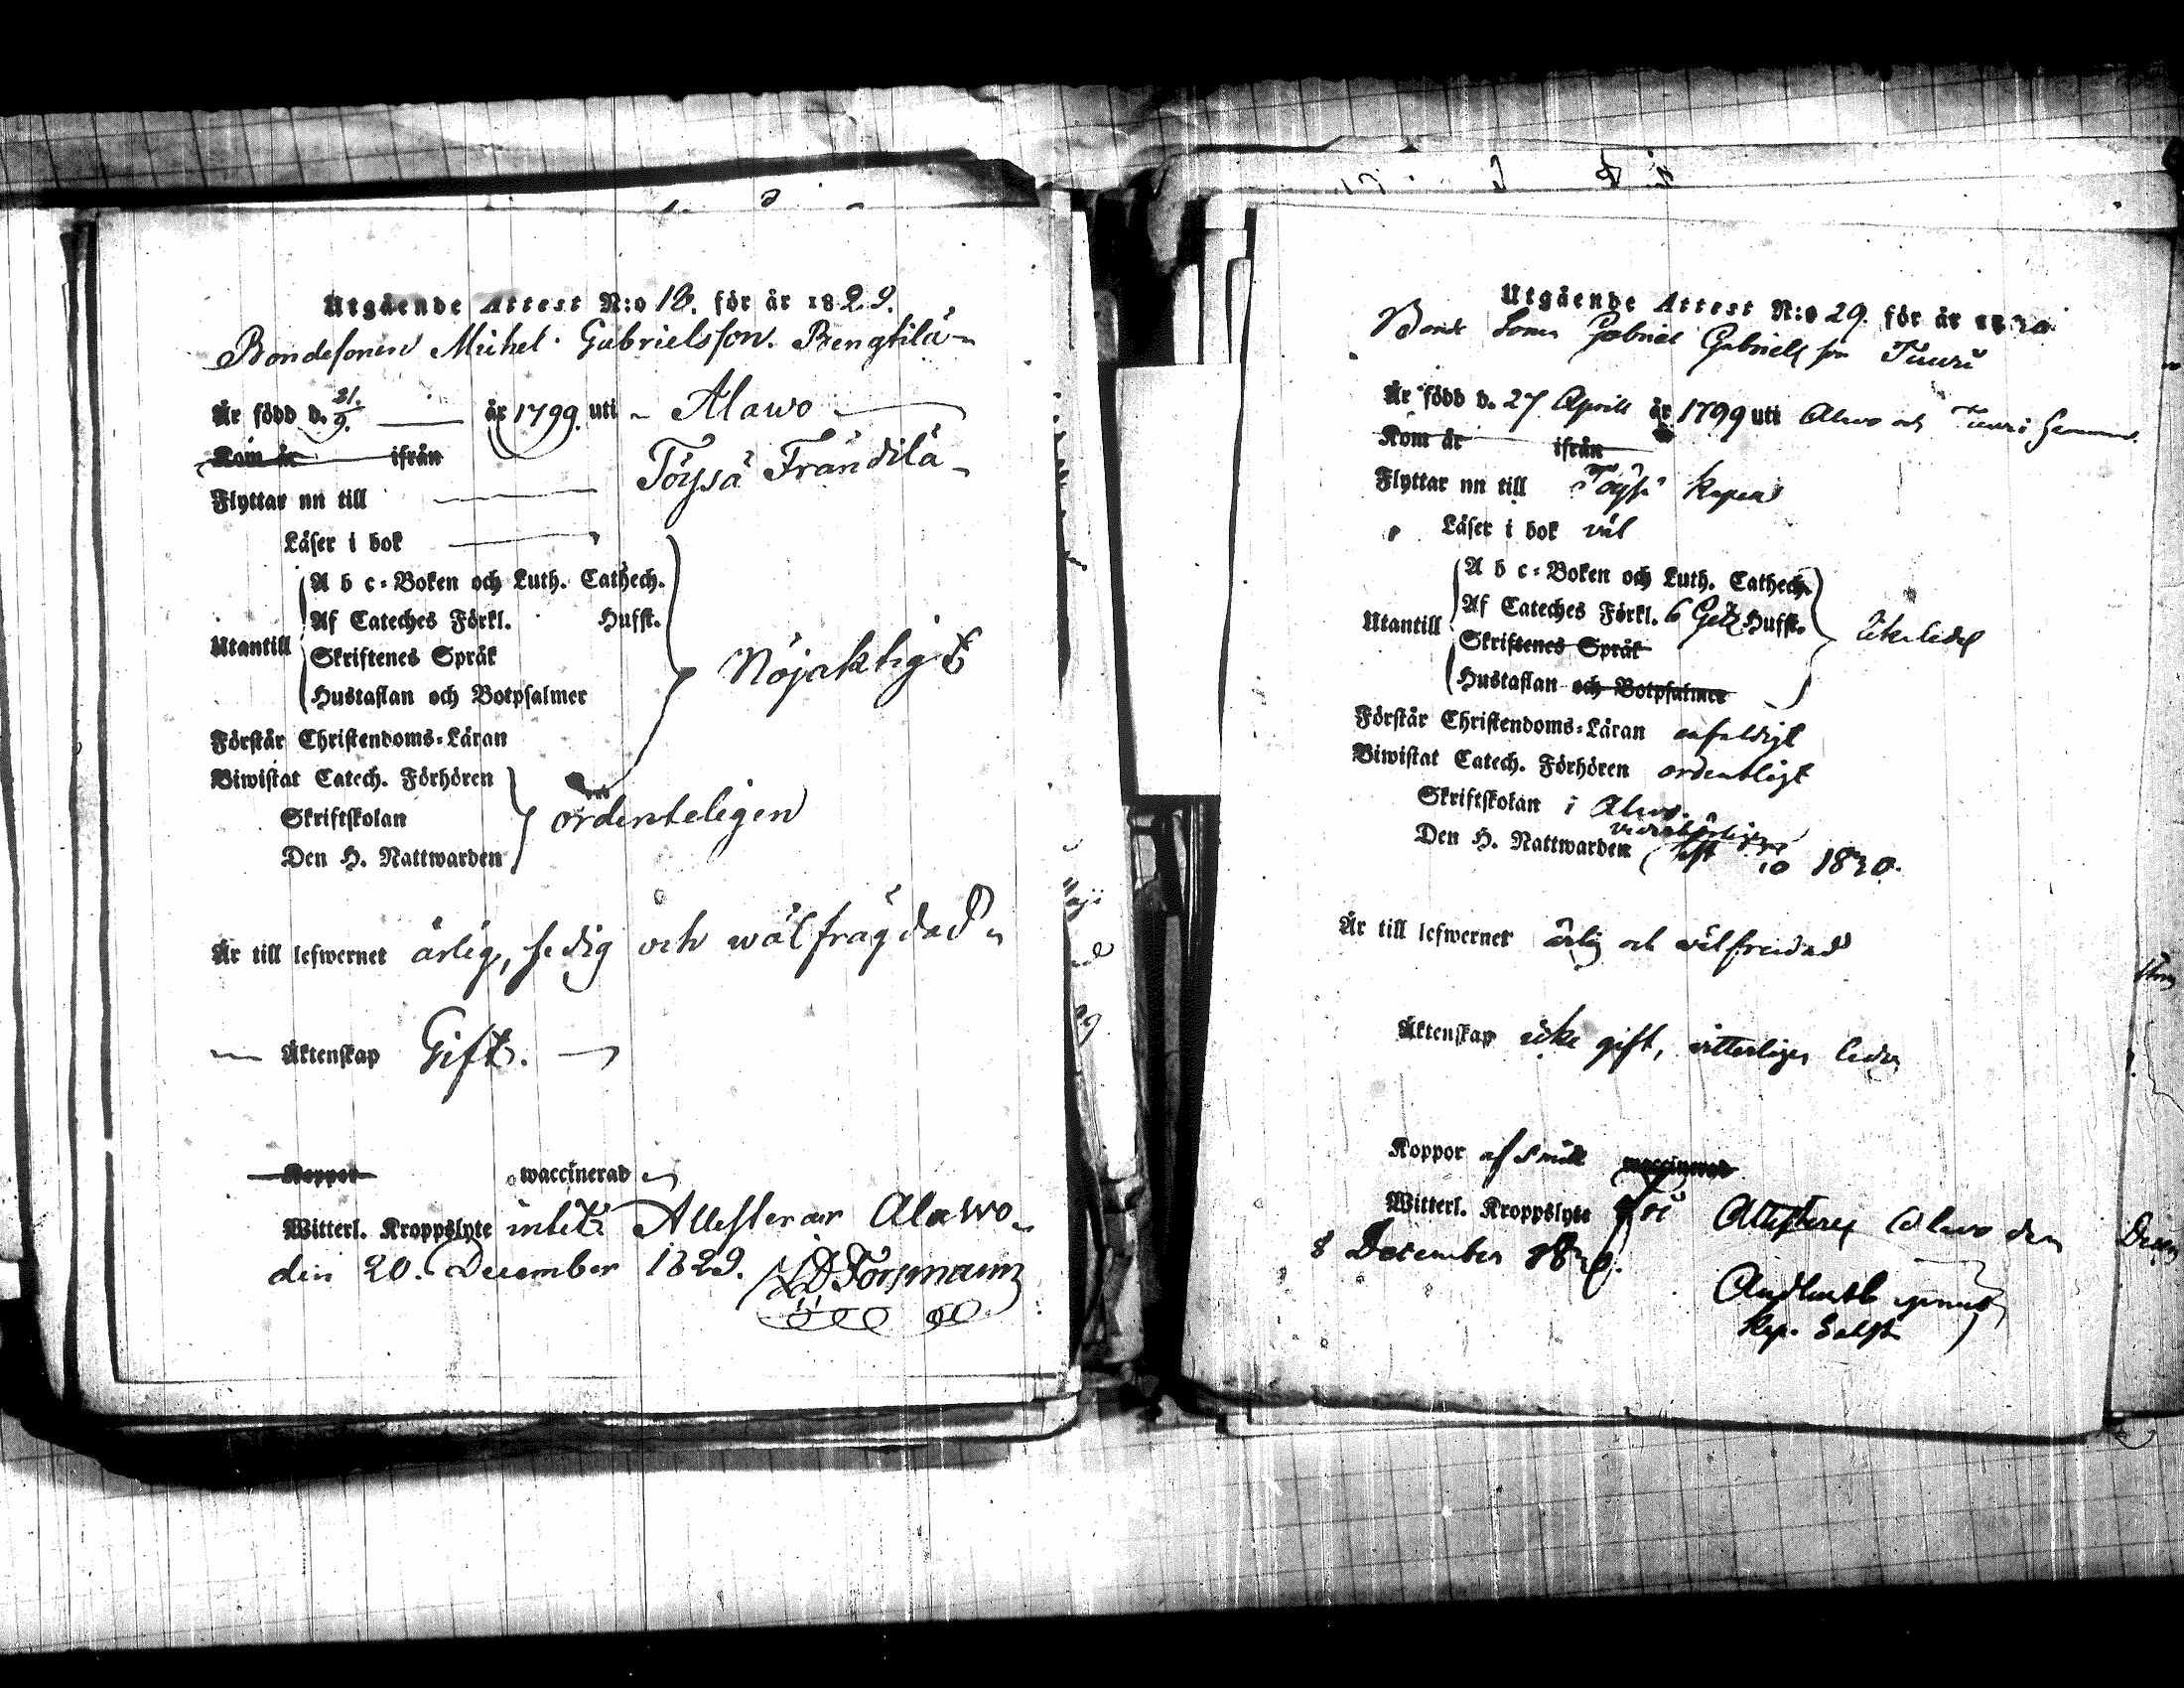 Utgående Attest N:o 18. för år 1829.
Bondesonen Michel Gabrielsson Bengtilä
Är född d. 21/9. år 1799. uti Alawo
Kom år ifrån
Töysä Frändilä
Flyttar nn till
Läser i bok
A b c-Boken och Luth. Cathech.
Af Cateches Förkl. Hufst.
Utantill
Skriftenes Språk
Nöjaktigt
Hustaflan och Botpsalmer
Förstår Christendoms-Läran
Biwistat Catech. Förhören
Skriftskolan
ordenteligen
Den H. Nattwarden
Är till lefwernet ärlig, sedig och wälfrägdad
Äktenskap Gift.
Koppor waccinerad
Witterl. Kroppslyte intet. Attesterar Alawo
den 20. December 1829. Forsmann
Utgående Attest N:o 29. för år 1830.
Bonde Sonen Gabriel Gabriells son Tuuri
Är född d. 27 Aprill år 1799 uti Alavo och Tuuri
Kom år ifrån
Flyttar nn till Töysä Kapell
Läser i bok väl
A b c-Boken och Luth. Cathech.
Af Cateches Förkl. 6 Hufst.
Utantill
Skriftenes Språk
Hustaflan och Botpsalmer
Förstår Christendoms-Läran enfaldigt
Biwistat Catech. Förhören ordentligt
Skriftskolan i Alavo.
Den H. Nattwarden 1830.
Är till lefwernet ärlig och välfrejdad
Äktenskap icke gift, vitterligen ledig
Koppor af waccinerad
Witterl. Kroppslyte Attesteras Alavo den
8 December 1830.
Kap.